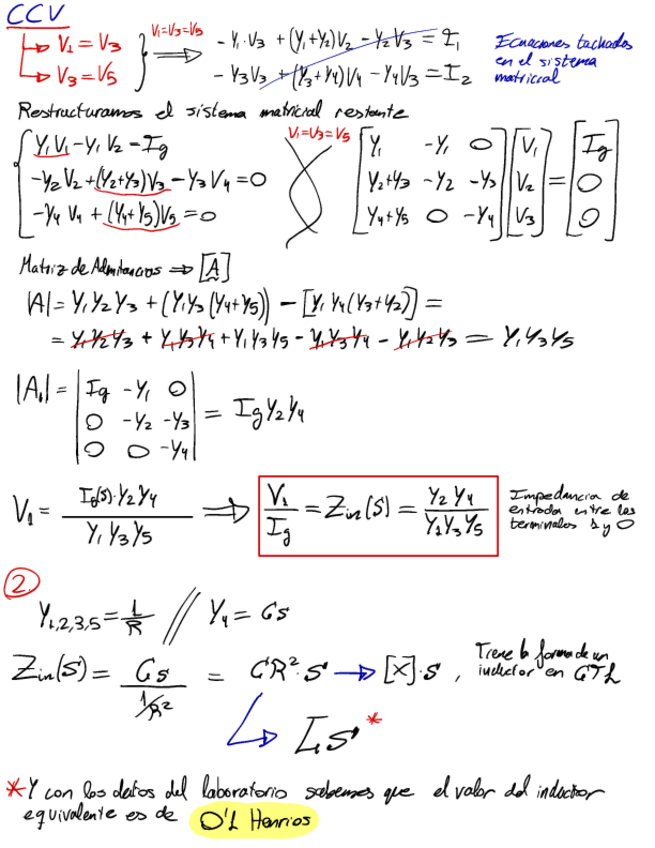 CCV
V₁ = V₃
V₃ = V₅
V₁=V₃=V₅
⟹
- Y₁·V₃ + (Y₁+Y₂)V₂ - Y₂V₃ = I₁
- Y₃V₃ + (Y₃+Y₄)V₄ - Y₄V₃ = I₂
Ecuaciones tachadas
en el sistema
matricial
Restructuramos el sistema matricial restante
Y₁V₁ - Y₁V₂ = Ig
-Y₂V₂ + (Y₂+Y₃)V₃ - Y₃V₄ = 0
-Y₄V₄ + (Y₄+Y₅)V₅ = 0
V₁=V₃=V₅
[Y₁ -Y₁ 0] [V₁] [Ig]
[Y₂+Y₃ -Y₂ -Y₃] [V₂] = [0]
[Y₄+Y₅ 0 -Y₄] [V₃] [0]
Matriz de Admitancias ⟹ [A]
|A| = Y₁Y₂Y₃ + (Y₁Y₃(Y₄+Y₅)) - [Y₁Y₄(Y₃+Y₂)] =
= Y₁Y₂Y₃ + Y₁Y₃Y₄ + Y₁Y₃Y₅ - Y₁Y₃Y₄ - Y₁Y₂Y₃ = Y₁Y₃Y₅
|A₁| = |Ig -Y₁ 0|
|0 -Y₂ -Y₃| = IgY₂Y₄
|0 0 -Y₄|
V₁ = Ig(s)·Y₂Y₄ / Y₁Y₃Y₅ ⟹ V₁/Ig = Zin(s) = Y₂Y₄ / Y₁Y₃Y₅
Impedancia de
entrada entre los
terminales 1 y 0
2.
Y₁,₂,₃,₅ = 1/R // Y₄ = Cs
Zin(s) = Cs / 1/R² = CR²·s → [X]·s ,
Tiene la forma de un
inductor en
Ls*
*Y con los datos del laboratorio sabemos que el valor del inductor
equivalente es de 0'1 Henrios